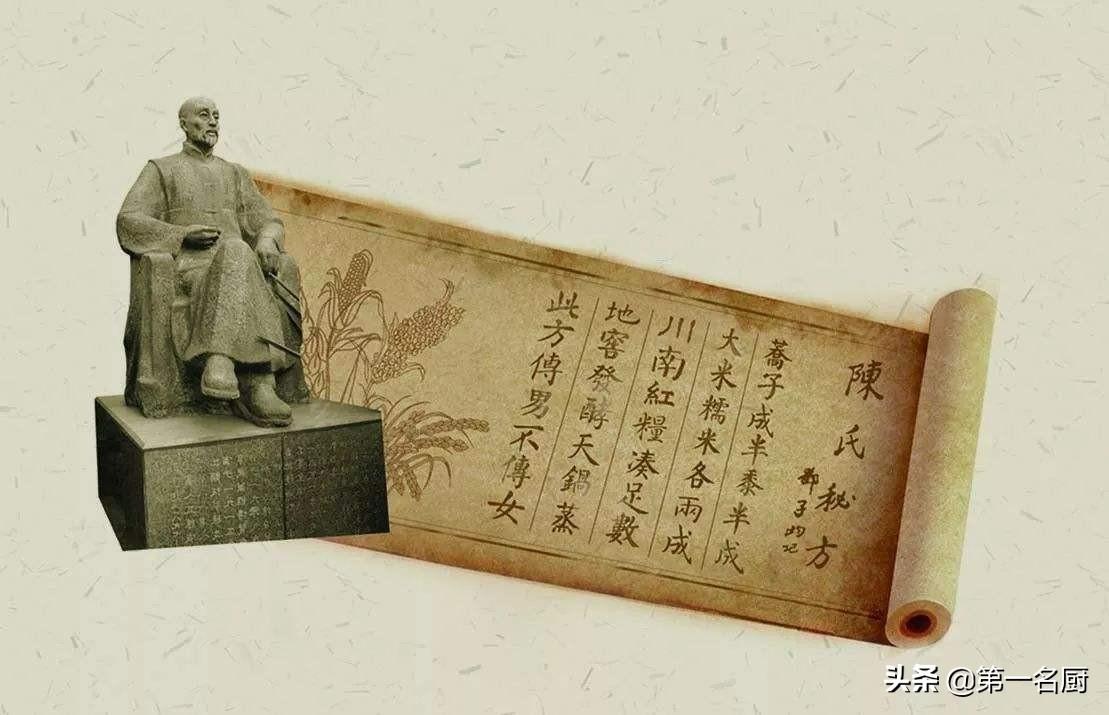 陳氏秘方
鄧子均記
蕎子成半黍半成
大米糯米各兩成
川南紅糧凑足數
地窖發酵天鍋蒸
此方傳男不傳女
头条 @第一名厨